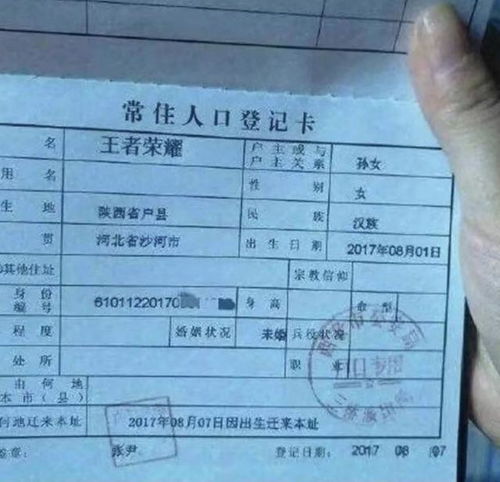 常住人口登记卡
名 王者荣耀 户主或与户主关系 孙女
用名 性别 女
生地 陕西省户县 民族 汉族
贯 河北省沙河市 出生日期 2017年08月01日
其他住址 宗教信仰
身份编号 61011220170 身高 血型
程度 婚姻状况 未婚 兵役状况
处所 职
由何地
本市(县)
何地迁来本址 2017年08月07日因出生迁来本址
签章: 张尹 登记日期: 2017 08 07